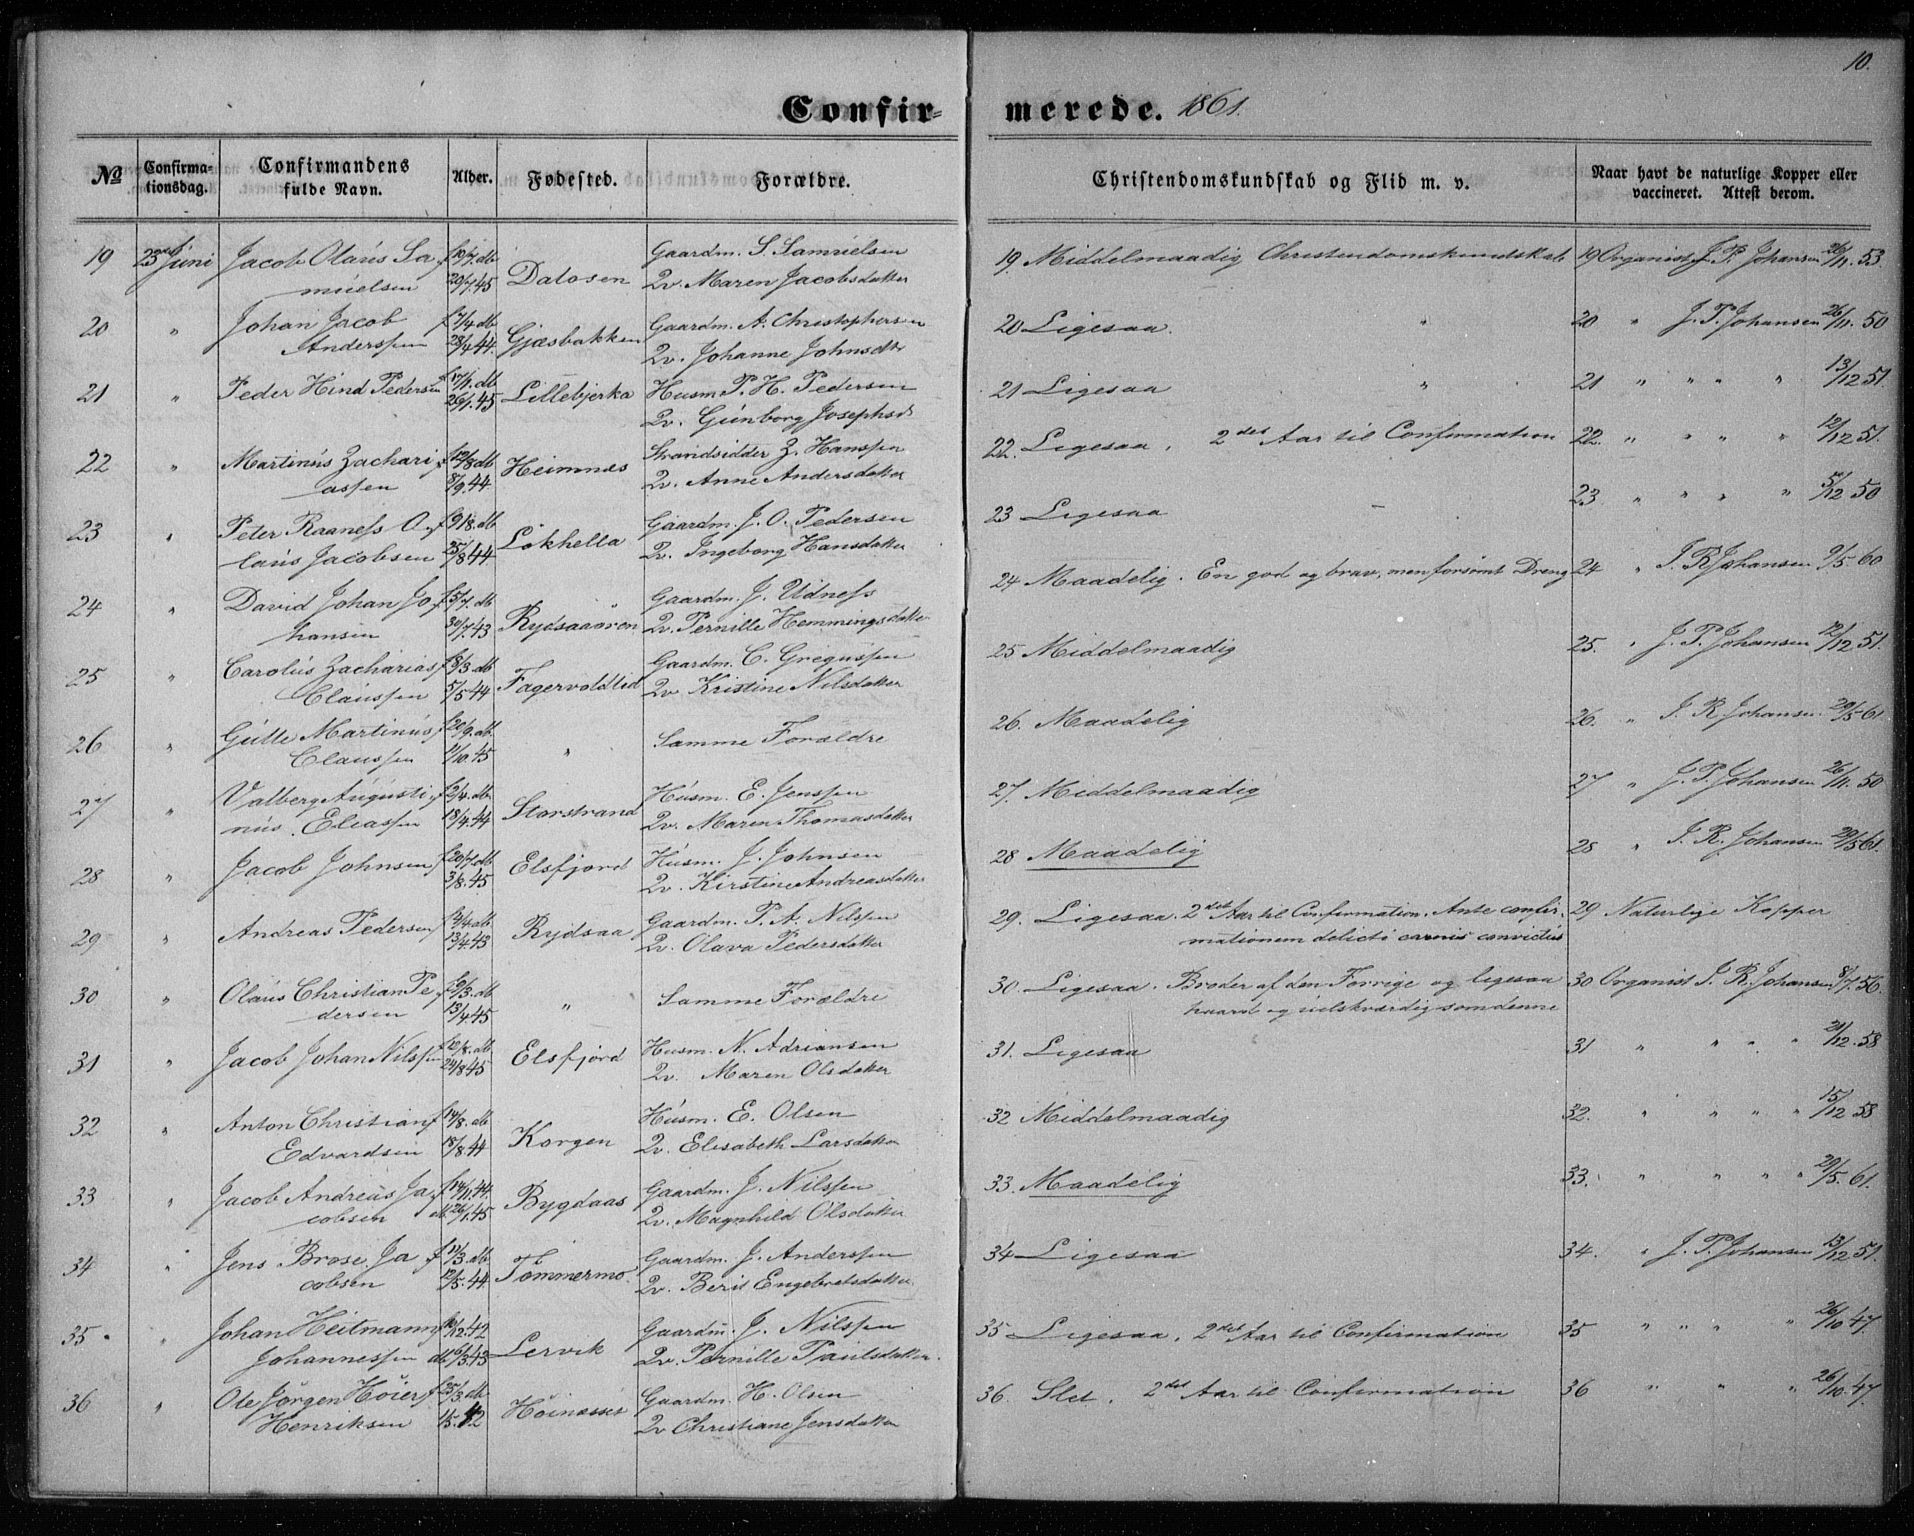 10.
Confir- merede. 1861.
No Confirma-tionsdag. Confirmandens fulde Navn. Alder. Fødested. Forældre. Christendomskundskab og Flid m. v. Naar havt de naturlige Kopper eller vaccineret. Attest derom.
19 23de Juni Jacob Olaus Sa- f 10/7. db Dalosen Gaardm. S. Samuelsen 19. Middelmaadig Christendomskundskab 19 Organist J. P. Johansen 26/11. 53
muelsen 20/7. 45 Qv. Maren Jacobsdatter
20 " Johan Jacob f 7/4 db Gjæsbakken Gaardm. A. Christophersen 20 Ligesaa. " 20 " J. P. Johansen 26/11. 50
Anderssen 28/4 44. Qv. Johanne Johnsdtr
21 " Peder Hind Pedersen f 17/1. db Lillebjerka Husm P. H. Pedersen 21 Ligesaa " 21 " " " " 13/12 51
26/1. 45 Qv. Gunborg Josephsd
22 " Martinus Zachari- f 12/8 db Heimnes Strandsidder Z. Hanssen 22. Ligesaa. 2det Aar til Confirmation 22. " " " " 12/12 51.
assen 8/9. 44. Qv. Anne Andersdatter
23 " Peter Raaness O- f 9/8. db Løkhella Gaardm. J. O. Pedersen 23 Ligesaa 23 " " " " 5/12 50
laus Jacobsen 25/8 44 Qv. Ingeborg Hansdatter
24 " David Johan Jo- f 5/7. db Rydsaaøren Gaardm. J. Utdness 24 Maadelig. En god og brav, men forsømt Dreng 24 " J. R. Johansen 9/5 60
hansen 30/7. 43 Qv. Pernille Hemmingsdatter
25 " Carolus Zacharias f 8/3. db Fagervoldlid Gaardm. C. Gregussen 25 Middelmaadig 25. " J. P. Johansen 12/12 51.
Claussen 5/5 44 Qv Kristine Nilsdatter
26 " Gulle Martinus f 20/9. db " Samme Forældre 26. Maadelig 26. " J. R. Johansen 29/5 61
Claussen 11/10. 45
27 " Valberg Augusti- f 2/4. db Storstrand Husm. E. Jenssen 27. Middelmaadig 27 " J. P. Johansen 26/11. 50
nus. Eliassen 18/4. 44 Qv. Maren Thomasdatter
28 " Jacob Johnsen f 20/7. db Elsfjord Husm. J. Johnsen 28 Maadelig 28 " J. R. Johansen 29/5 61.
3/8. 45 Qv. Kirstine Andreasdatter
29 " Andreas Pedersen f 2/4. db Rydsaa Gaardm. P. A. Nilssen 29. Ligesaa. 2det Aar til Confirmation. Ante confir- 29 Naturlige Kopper
13/4. 43 Qv. Olava Pedersdatter mationem delicti carnis convictus
30 " Olaus Christian Pe- f 9/3. db " Samme Forældre 30. Ligesaa. Broder af den Forrige og ligesaa 30 Organist J. R. Johansen 8/7. 56.
dersen 13/4. 45 haard og uelskværdig som denne
31 " Jacob Johan Nilssen f 12/8. db Elsfjord Husm. N. Adriansen 31. Ligesaa 31 " " " " 21/12. 58
24/8 45 Qv. Maren Olsdatter
32 " Anton Christian f 14/8. db Korgen Husm. E. Olsen 32 Middelmaadig 32. " " " " 15/12 58
Edvardsen 18/8. 44 Qv. Elisabeth Larsdatter
33 " Jacob Andreas Ja- f 14/11. 44. Bygdaas Gaardm. J. Nilssen 33. Maadelig 33. " " " " 29/5. 61.
cobsen db 26/1. 45 Qv. Magnhild Olsdatter
34 " Jens Brose Ja- f 17/3. db Tømmermo. Gaardm. J. Anderssen 34 Ligesaa 34. " J. P. Johansen 13/12. 51.
cobsen 12/5. 44 Qv. Berit Engebretsdatter
35 " Johan Heitmann f 10/12. 42 Lervik Gaardm. J. Nilssen 35 Ligesaa. 2det Aar til Confirmation 35 " " " " 26/10. 47.
Johannessen db 6/3. 43 Qv. Pernille Paulsdatter.
36 " Ole Jørgen Høier f 25/3. db Høinæsset Gaardm. H. Olsen 36. Slet. 2det Aar til Confirmation 36 " " " 26/10. 47.
Henriksen 1/5. 42 Qv Christiane Jensdatter